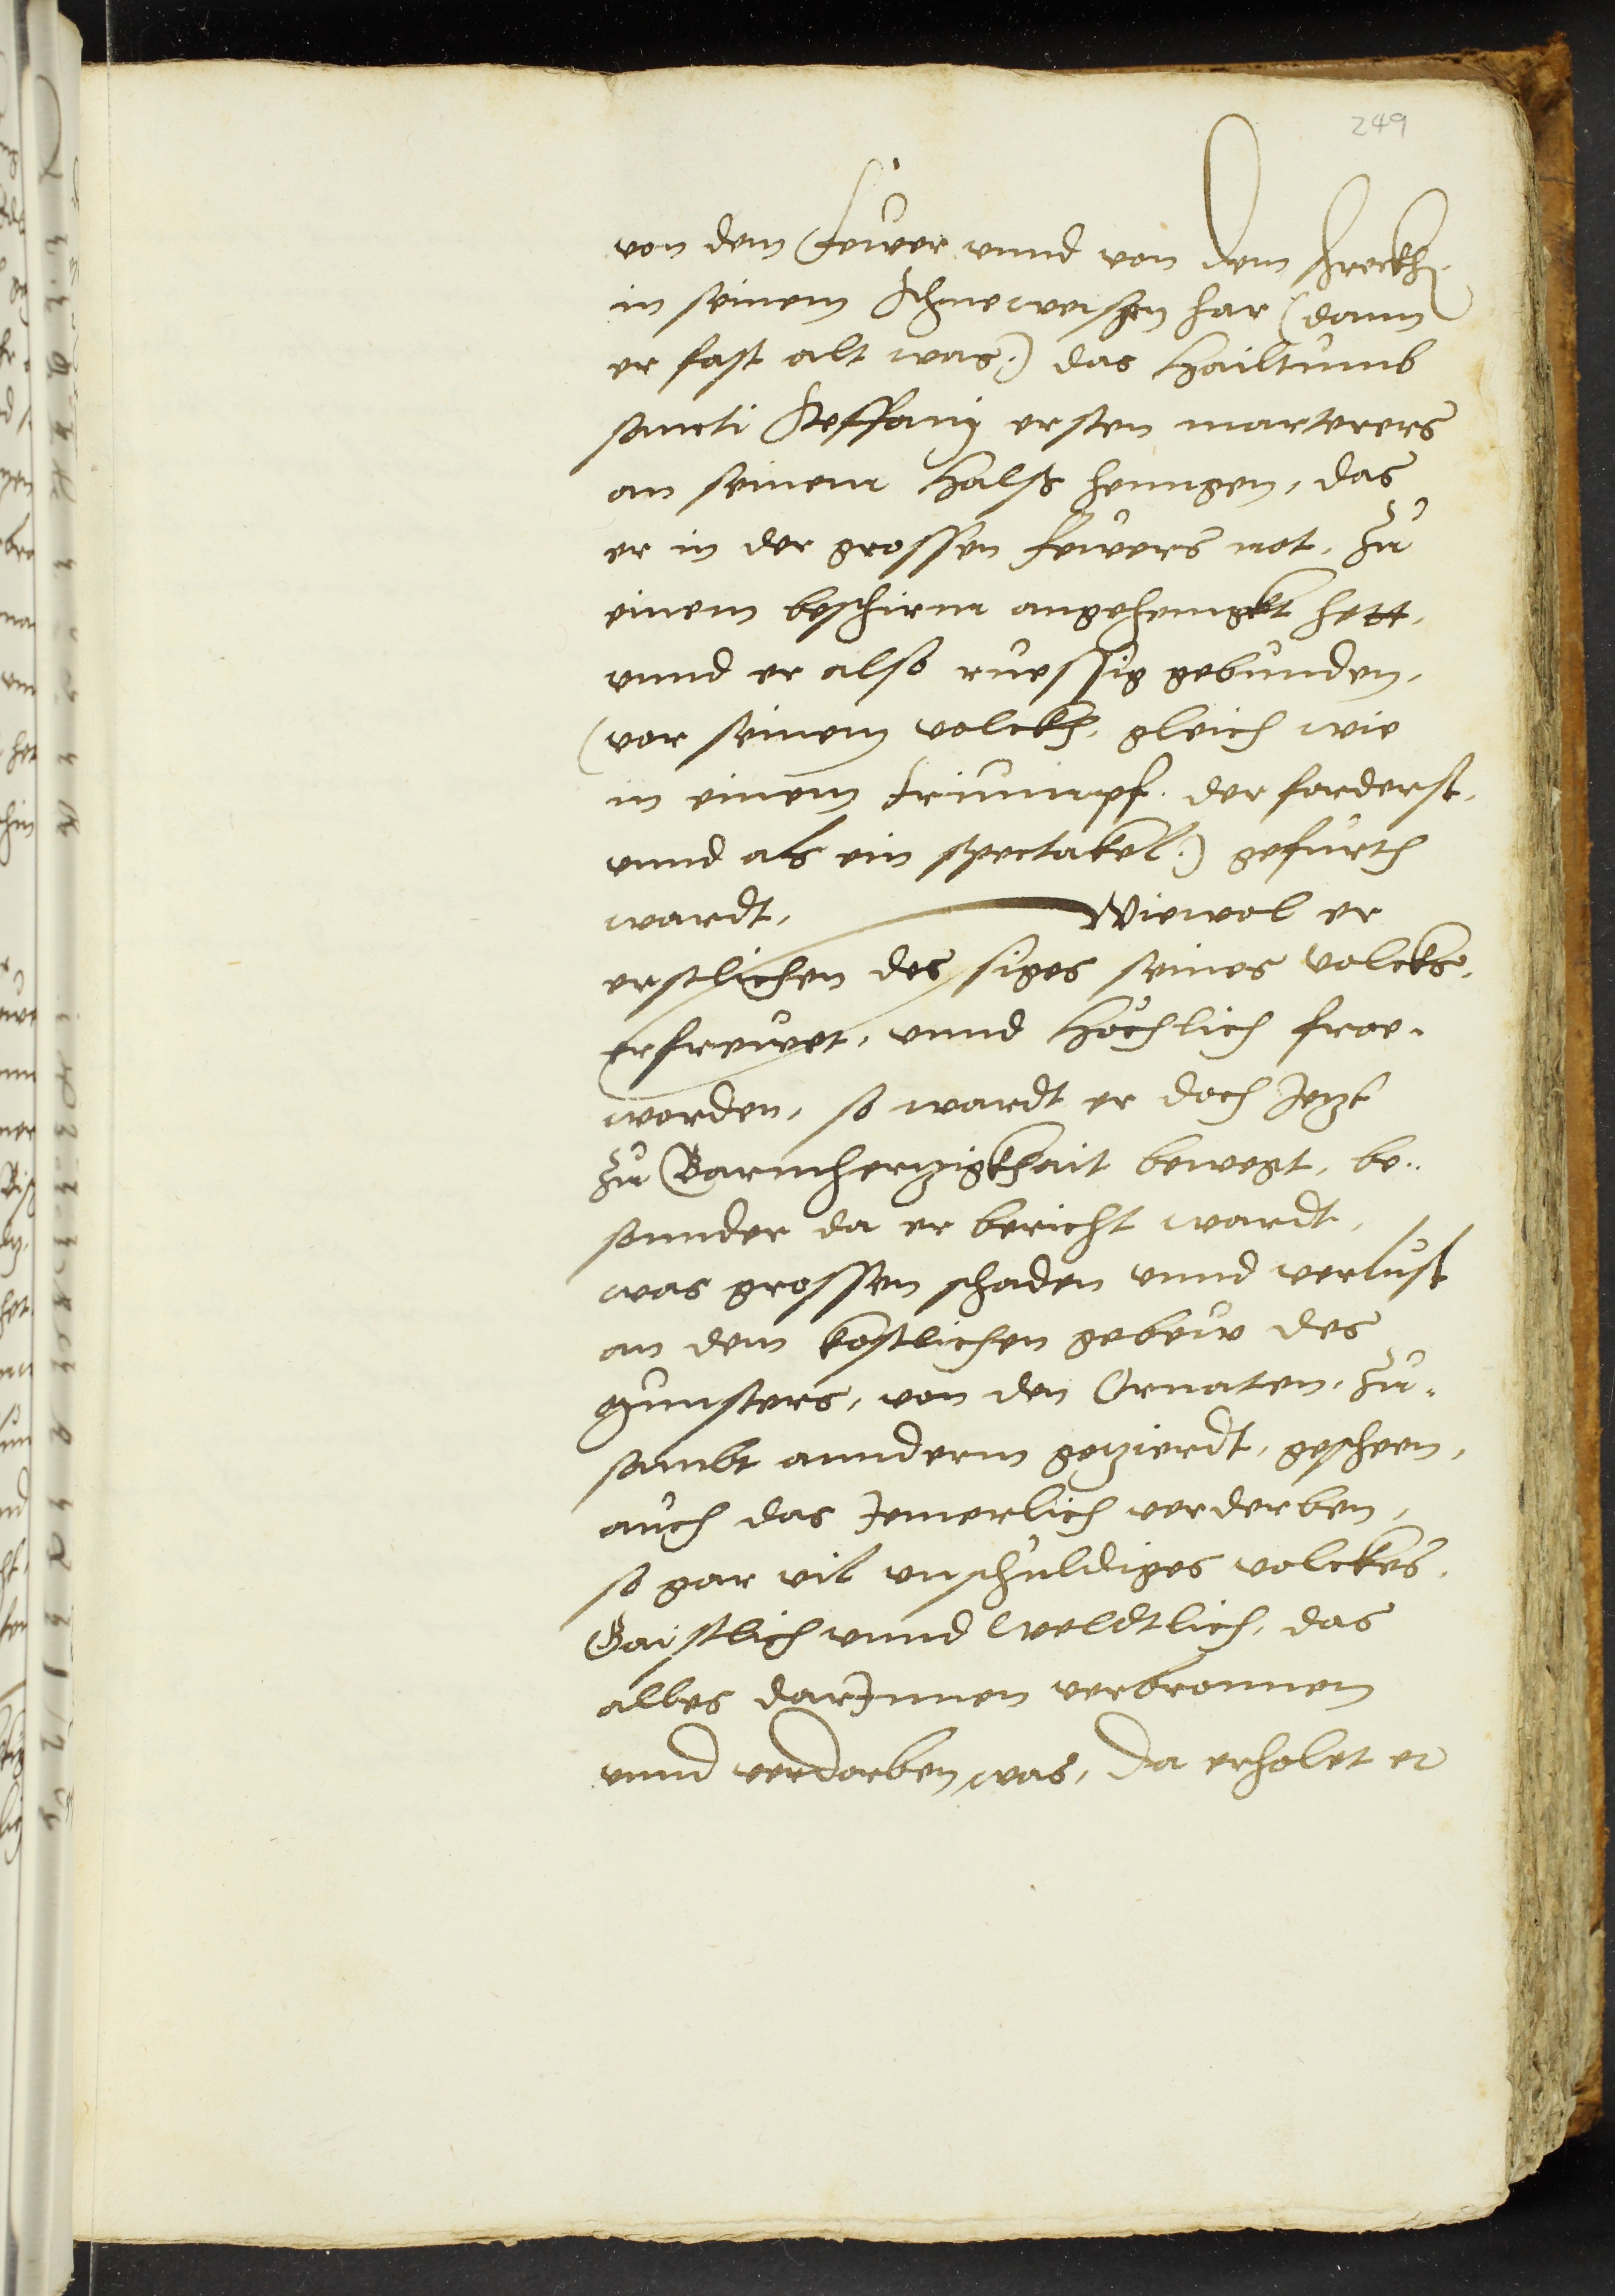 249
von dem feuwer unnd von dem schreckh,
in seinem schneeweissen har (dann
er fast alt was:) das Hailtumb
sancti Steffanj ersten marterers
an seinem Halss hanngen, das
er in der grossen feuwers not, zu
einem beschirm angehengkt hett,
unnd er also ruessig gebunden,
(vor seinem volckh, gleich wie
in einem triumpf. der forderst,
unnd als ein spectakel:) gefurth
wardt, Wiewol er
erstlichen des siges seines volcks,
erfreuwet, unnd hochlich froe
worden, so wardt er doch Jetzt
zu Barmhertzigkhait bewegt, be-
sunder da er bericht wardt,
was grossen schaden unnd verlust
an dem kostlichen gebeuw des
Munsters, von den Ornaten, zu-
sambt annderm getzierdt, gescheen,
auch das Jemerlich verderben,
so gar vil unschuldiges volckes,
Gaistlich unnd Weldtlich, das
alles darJnnen verbronnen
unnd verdorben was, da erholet er